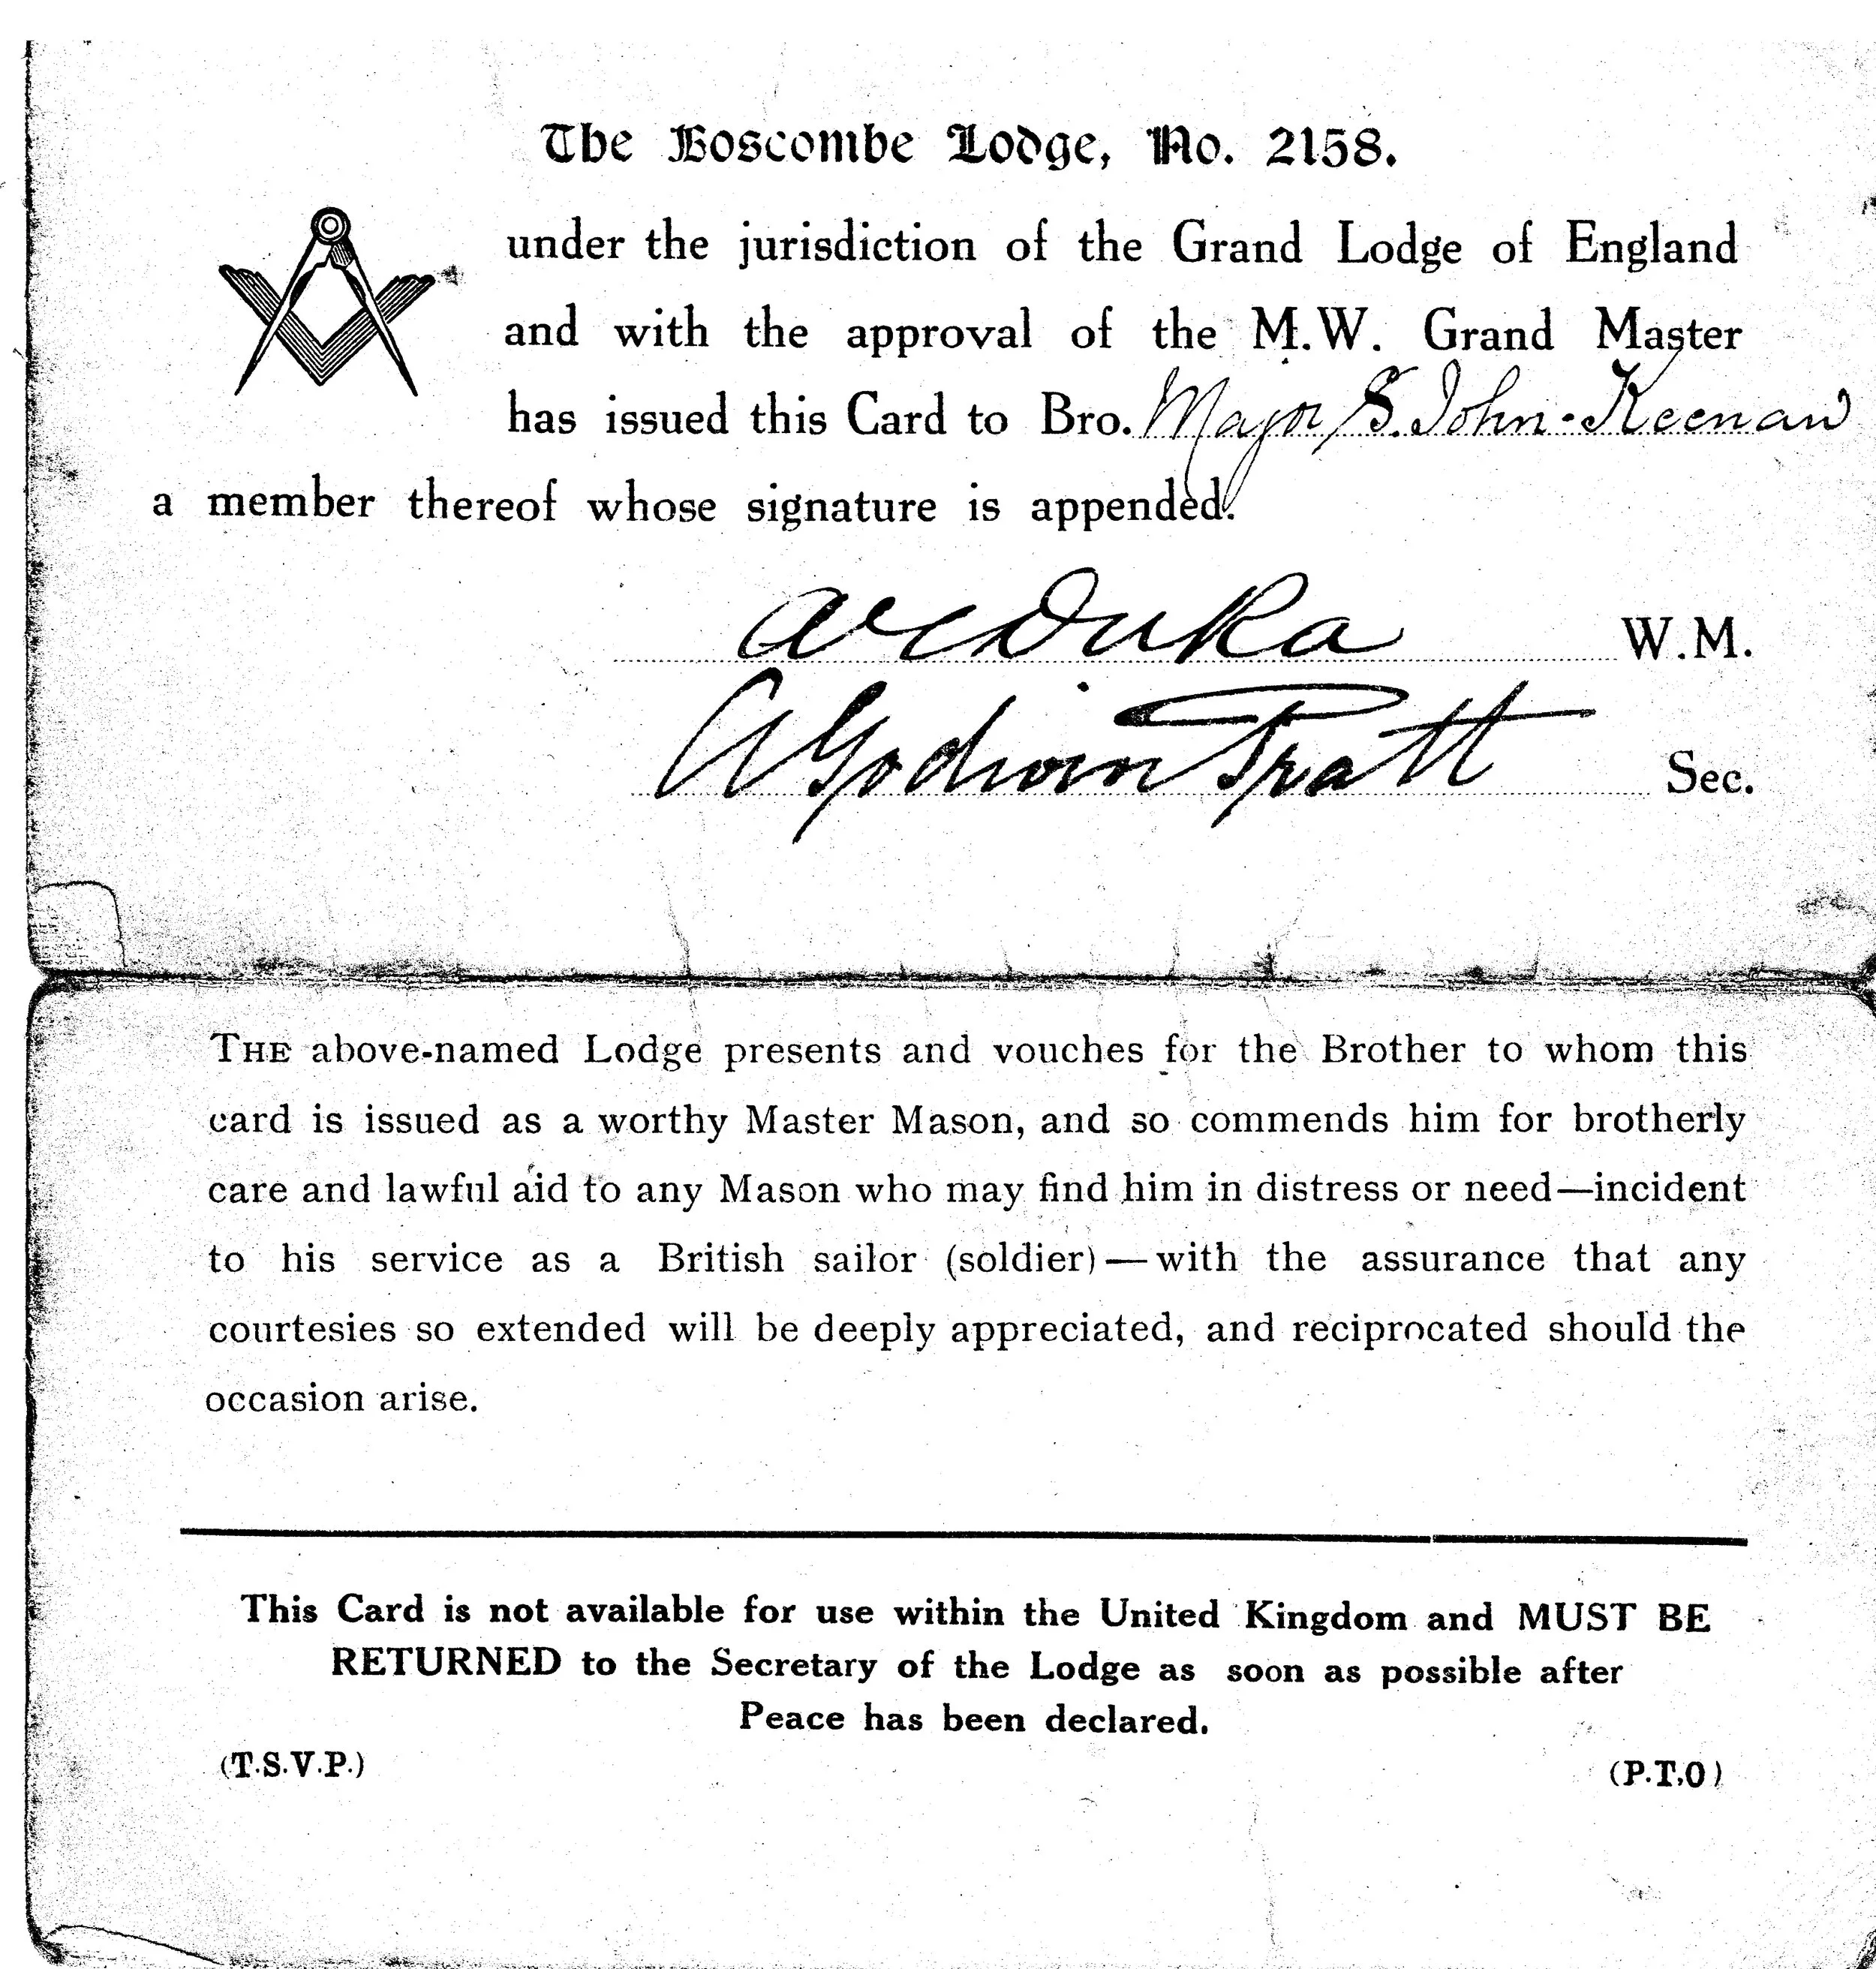 The Boscombe Lodge, No. 2158.
under the jurisdiction of the Grand Lodge of England
and with the approval of the M.W. Grand Master
has issued this Card to Bro. Major S. John-Keenan
a member thereof whose signature is appended.
Duka W.M.
A Godwin Pratt Sec.
THE above-named Lodge presents and vouches for the Brother to whom this
card is issued as a worthy Master Mason, and so commends him for brotherly
care and lawful aid to any Mason who may find him in distress or need—incident
to his service as a British sailor (soldier)—with the assurance that any
courtesies so extended will be deeply appreciated, and reciprocated should the
occasion arise.
This Card is not available for use within the United Kingdom and MUST BE
RETURNED to the Secretary of the Lodge as soon as possible after
Peace has been declared.
(T.S.V.P.) (P.T.O)